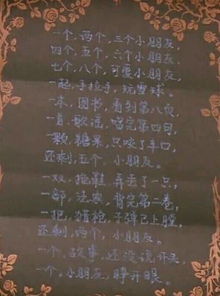 一个、两个、三个小朋友,
四个、五个、六个小朋友,
七个、八个、可爱小朋友,
一起、手拉手、玩雪球。
一本、图书、看到第八页,
一首、歌谣、唱完第四句,
一颗、糖果、只咬了半口,
还剩、五个、小朋友。
一双、拖鞋、弄丢了一只,
一部、法典、背完第一卷,
一把、猎枪、子弹已上膛,
还剩、两个、小朋友。
一个、故事、还没说开头,
一个、小朋友、睁开眼。